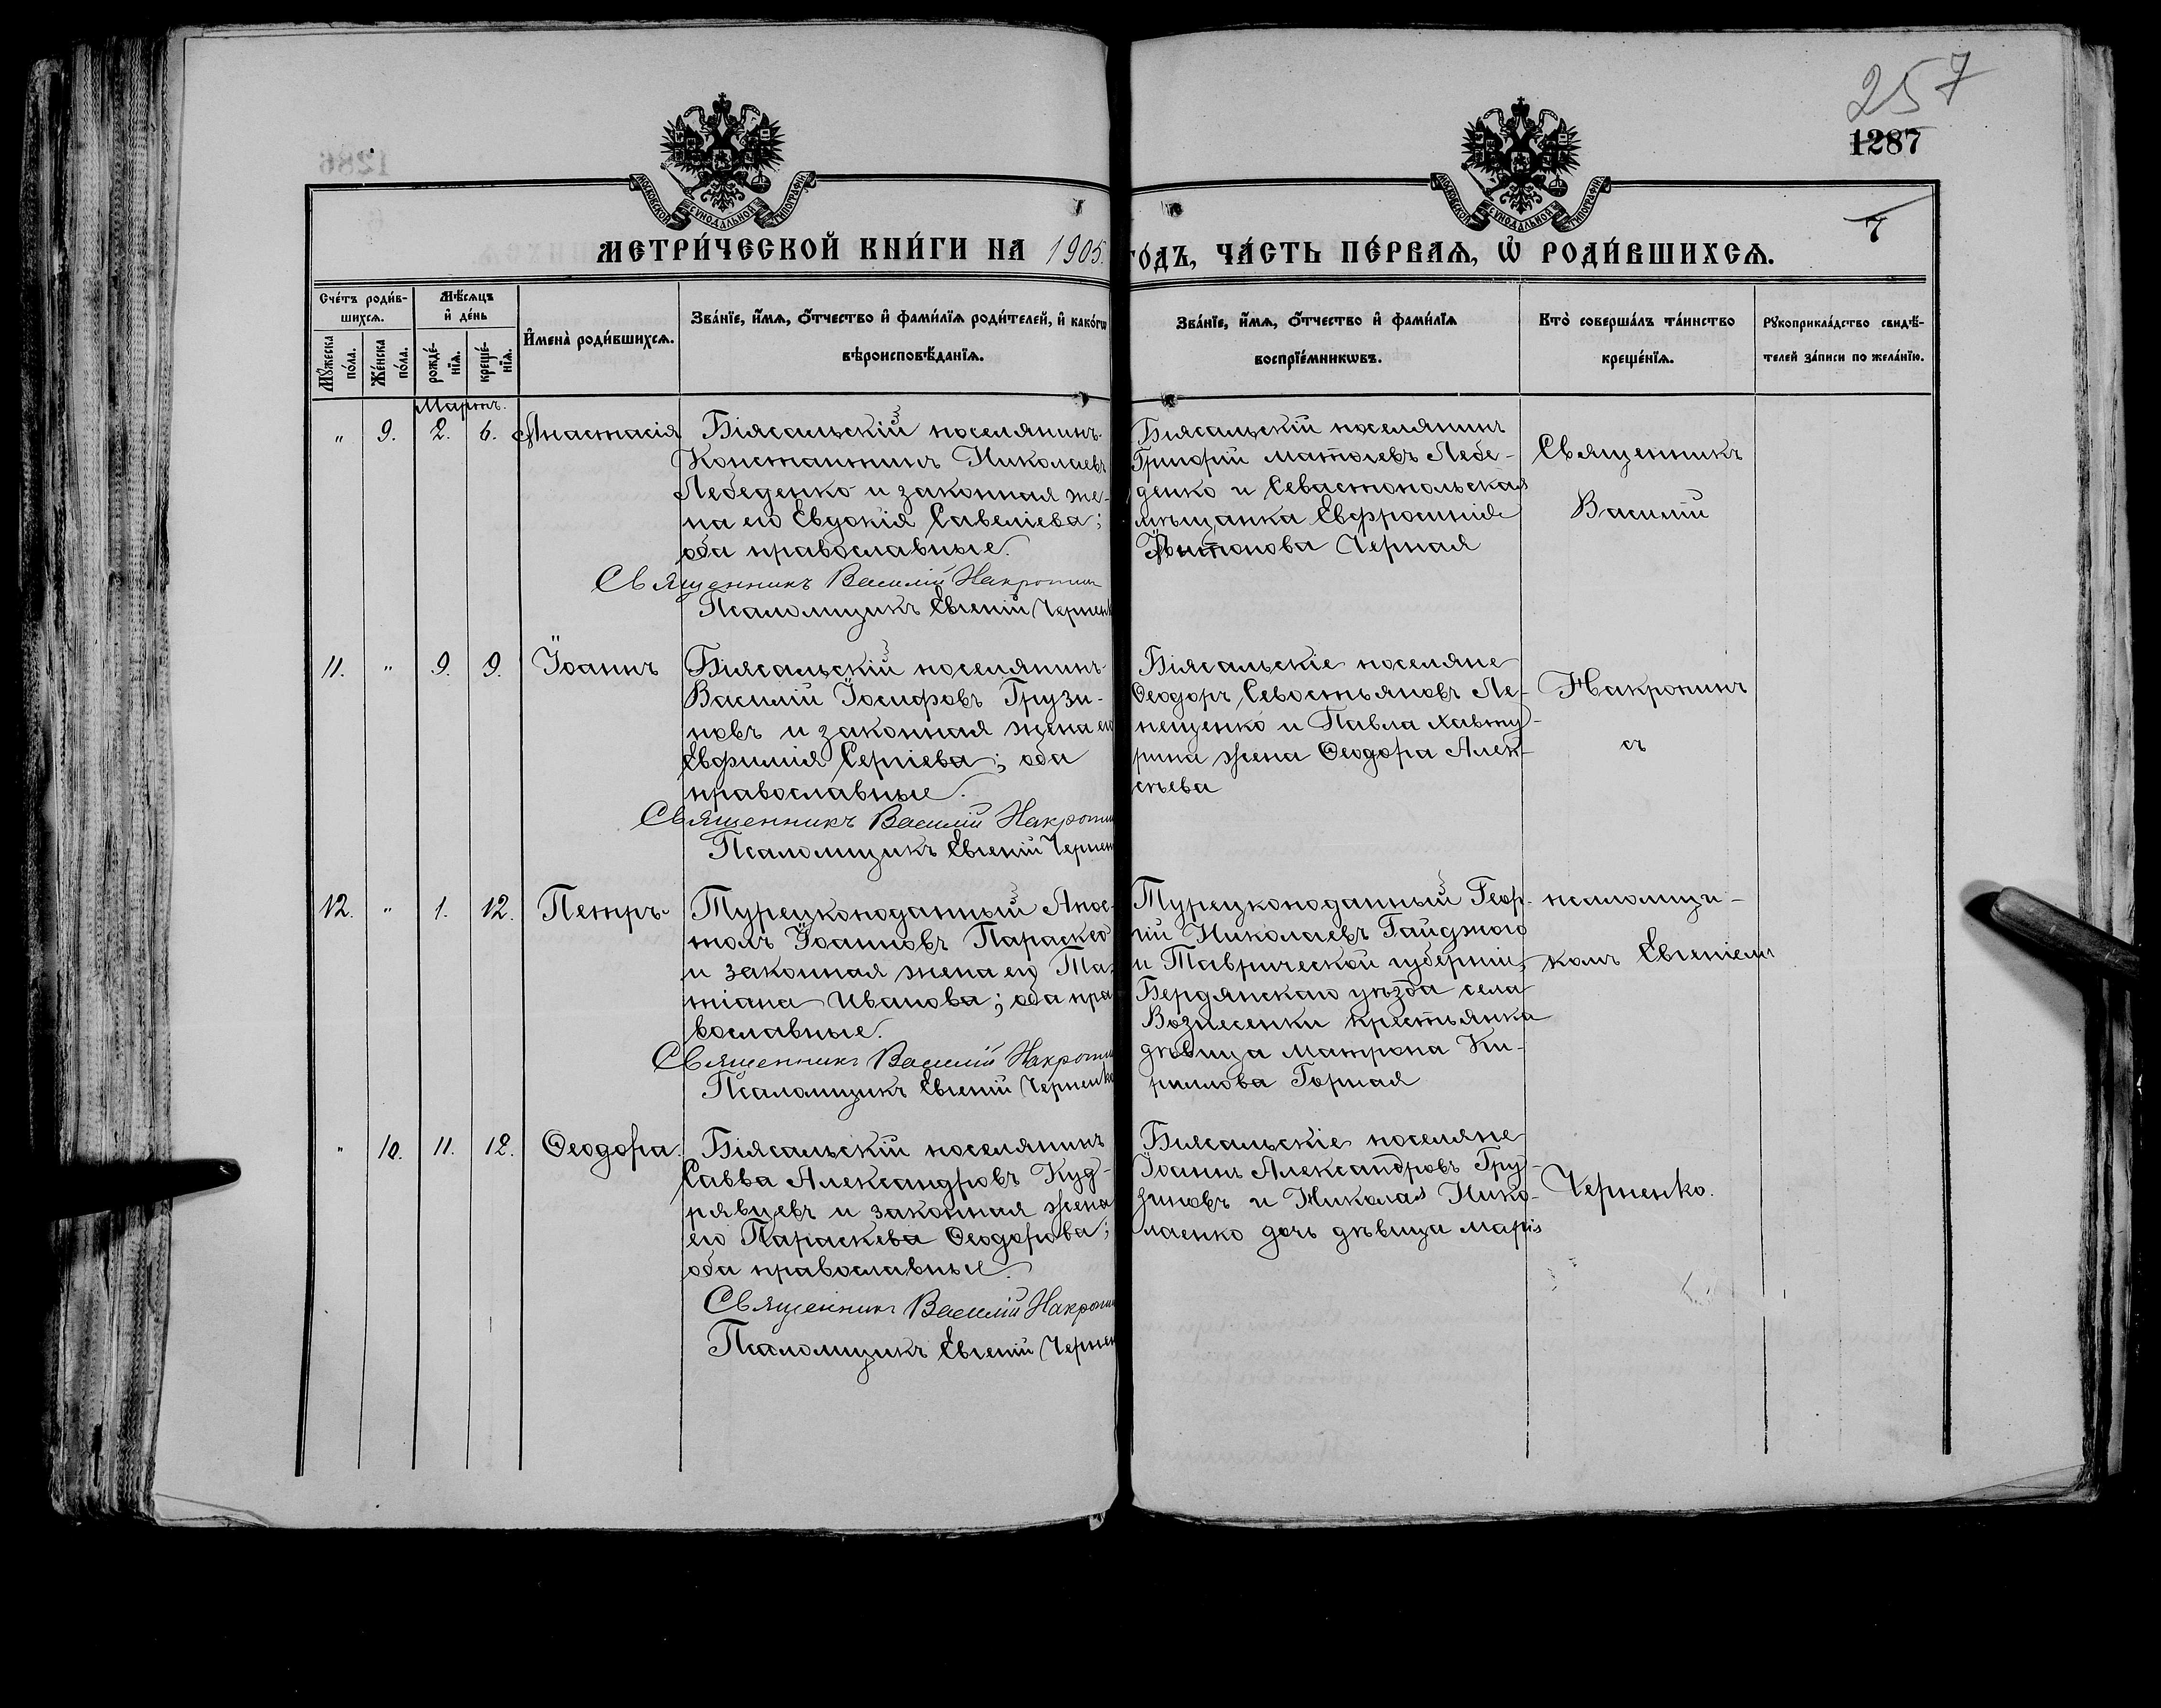 257
1287
7
МОСКОВСКОЙ СѴНОДАЛЬНОЙ ТИПОГРАФІИ
МОСКОВСКОЙ СѴНОДАЛЬНОЙ ТИПОГРАФІИ
МЕТРИ́ЧЕСКОЙ КНИ́ГИ НА 1905.
ГО́ДЪ, ЧА́СТЬ ПЕ́РВАѦ, Ѽ РОДИ́ВШИХСѦ.
Сче́тъ роди́в-
шихсѧ.
Мꙋ́жеска по́ла.
Же́нска по́ла.
Мѣ́сѧцъ и҆ де́нь
рожде́-
нїѧ.
креще́-
нїѧ.
И҆мена̀ роди́вшихсѧ.
Зва́нїе, и҆́мѧ, ѻ҆́тчество и҆ фами́лїѧ роди́телей, и҆ како́гѡ
вѣроисповѣ́данїѧ.
Зва́нїе, и҆́мѧ, ѻ҆́тчество и҆ фами́лїѧ
воспрїе́мникѡвъ.
Кто̀ соверша́лъ та́инство
креще́нїѧ.
Рꙋкоприкла́дство свидѣ́-
телей за́писи по жела́нїю.
Мартъ.
" 9. 2. 6. Анастасія
Біясальскій поселянинъ
Константинъ Николаевъ
Лебеденко и законная же-
на его Евдокія Савеліева;
оба православные.
Священникъ Василій Накропин
Псаломщикъ Евгеній Черненк
Біясальскій поселянинъ
Григорій Матѳіевъ Лебе-
денко и Севастопольская
мѣщанка Евфросинія
Антонова Черная
Священникъ
Василій
11. " 9. 9. Іоаннъ
Біясальскій поселянинъ
Василій Іосифовъ Грузи-
новъ и законная жена его
Евфимія Сергіева; оба
православные.
Священникъ Василій Накропин
Псаломщикъ Евгеній Чернен
Біясальскіе поселяне
Ѳеодоръ Севостьяновъ Ле-
пещенко и Павла Хавту-
рина жена Ѳеодора Алек-
сѣева
Накропинъ
съ
12. " 1. 12. Петръ
Турецкоподанный Апос-
толъ Іоанновъ Параскево
и законная жена его Та-
тіана Иванова; оба пра
вославные.
Священникъ Василій Накропин
Псаломщикъ Евгеній Черненко
Турецкоподанный Геор-
гій Николаевъ Гайджого
и Таврической губерніи,
Бердянскаго уѣзда села
Вознесенки крестьянка
дѣвица Матрона Ки-
риллова Горная
псаломщи-
комъ Евгеніемъ
" 10. 11. 12. Ѳеодора.
Біясальскій поселянинъ
Савва Александровъ Куд-
рявцевъ и законная жена
его Параскева Ѳеодорова;
оба православные.
Священникъ Василій Накропин
Псаломщикъ Евгеній Чернен
Біясальскіе поселяне
Іоаннъ Александровъ Гру-
зиновъ и Николая Нико-
лаенко дочь дѣвица Марія
Черненко.